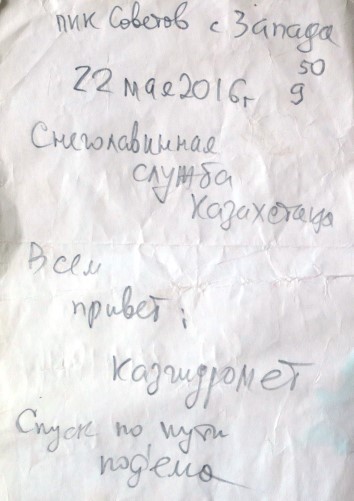 пик Советов с Запада
22 мая 2016г 9 50
Снеголавинная
служба
Казахстана
Всем
привет!
Казгидромет
Спуск по пути
подъема